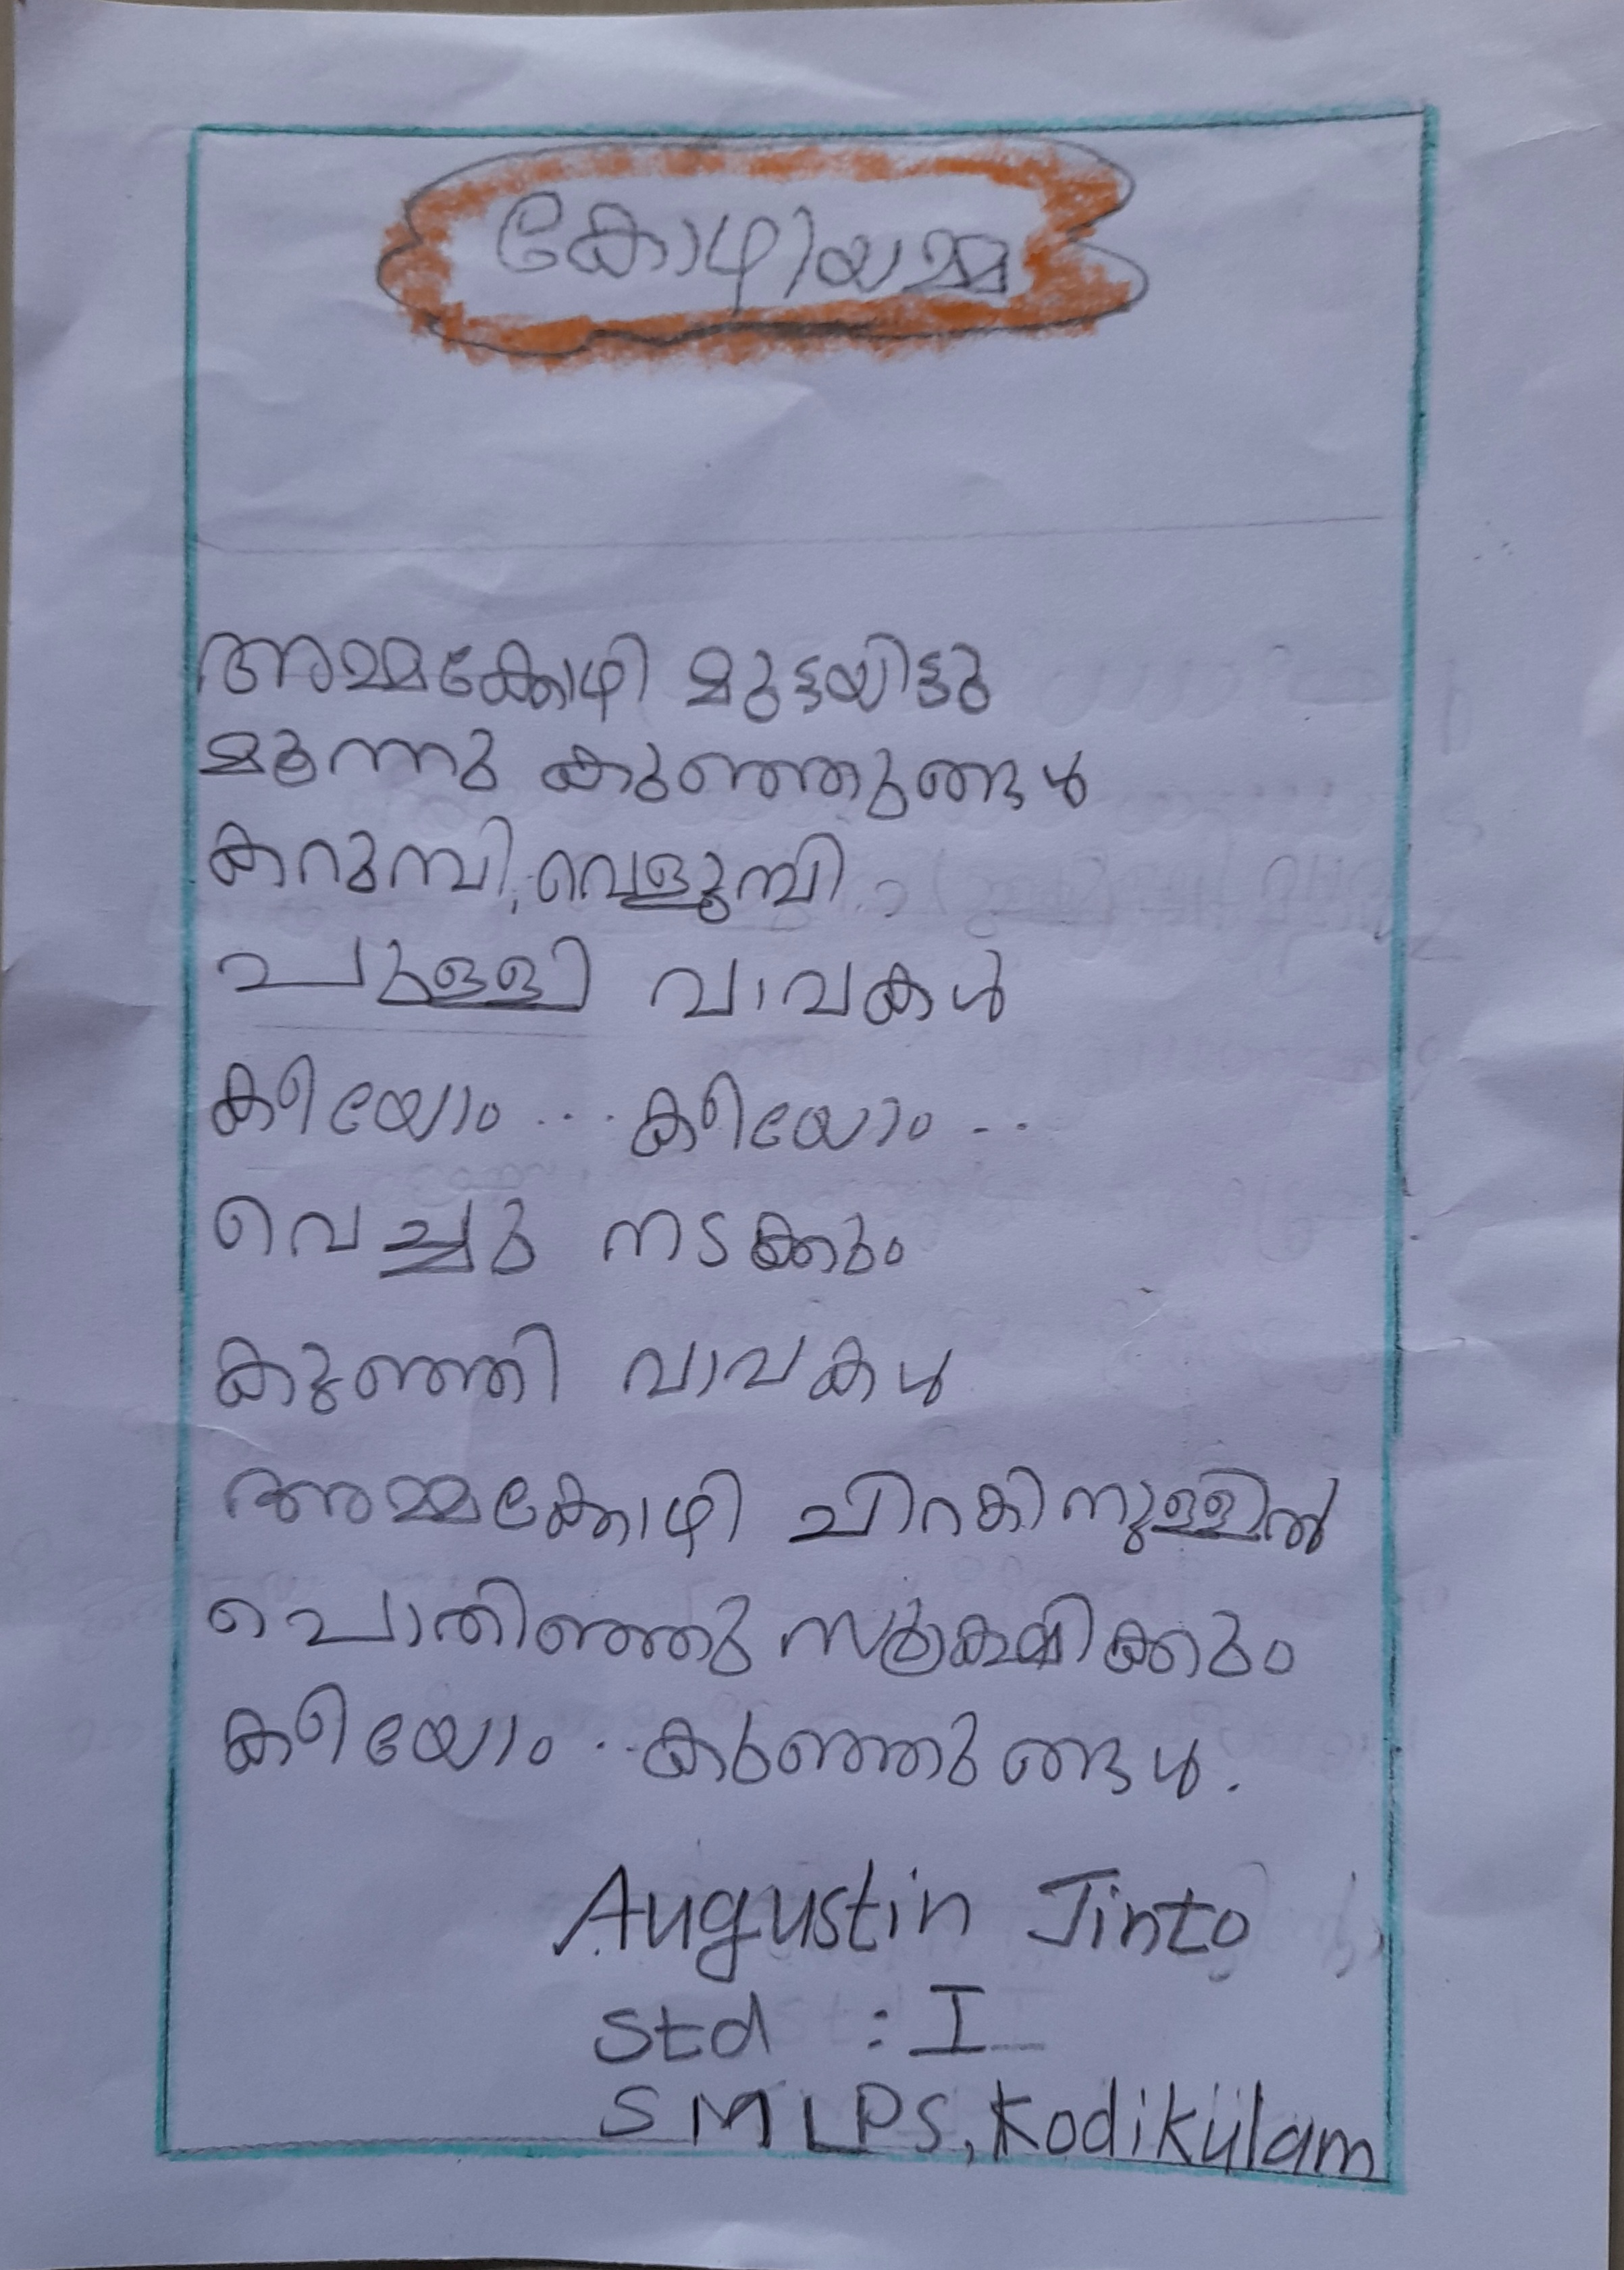 കോഴിയമ്മ
അമ്മക്കോഴി മുട്ടയിട്ടു
മൂന്നു കുഞ്ഞുങ്ങൾ
കറുമ്പി, വെളുമ്പി,
പുള്ളി വാവകൾ
കീയോം ... കീയോം ..
വെച്ചു നടക്കും
കുഞ്ഞി വാവകൾ
അമ്മക്കോഴി ചിറകിനുള്ളിൽ
പൊതിഞ്ഞു സൂക്ഷിക്കും
കീയോം .. കുഞ്ഞുങ്ങൾ.
Augustin Jinto
Std : I
SMLPS, Kodikulam